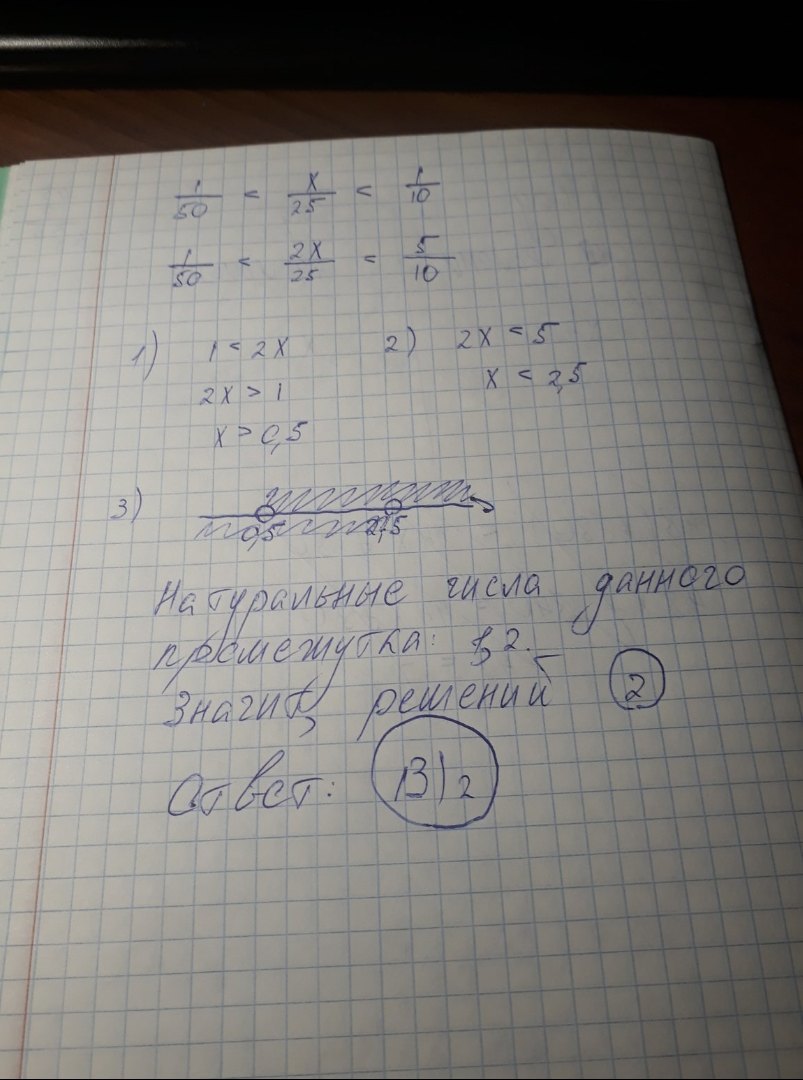 1/50 < x/25 < 1/10
1/50 < 2x/25 < 5/10
1) 1 < 2x 2) 2x < 5
2x > 1 x < 2,5
x > 0,5
3) 0,5 2,5
Натуральные числа данного
промежутка: 1, 2.
Значит, решений 2
Ответ: В) 2